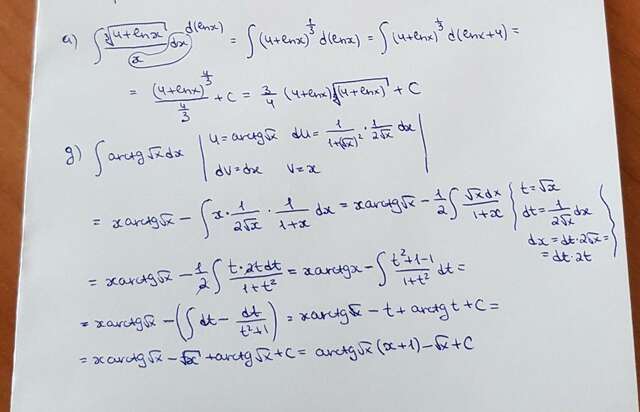 a) ∫ ∛(4+lnx)/x dx d(lnx) = ∫ (4+lnx)^(1/3) d(lnx) = ∫ (4+lnx)^(1/3) d(lnx+4) =
= (4+lnx)^(4/3) / (4/3) + C = 3/4 (4+lnx) ∛(4+lnx) + C
g) ∫ arctg√x dx | u = arctg√x du = 1/(1+(√x)²) · 1/(2√x) dx
dv = dx v = x |
= x arctg√x - ∫ x · 1/(2√x) · 1/(1+x) dx = x arctg√x - 1/2 ∫ √x dx/(1+x) { t = √x
dt = 1/(2√x) dx
dx = dt · 2√x =
= dt · 2t }
= x arctg√x - 1/2 ∫ t · 2t dt/(1+t²) = x arctgx - ∫ (t²+1-1)/(1+t²) dt =
= x arctg√x - (∫ dt - dt/(t²+1)) = x arctg√x - t + arctg t + C =
= x arctg√x - √x + arctg√x + C = arctg√x (x+1) - √x + C